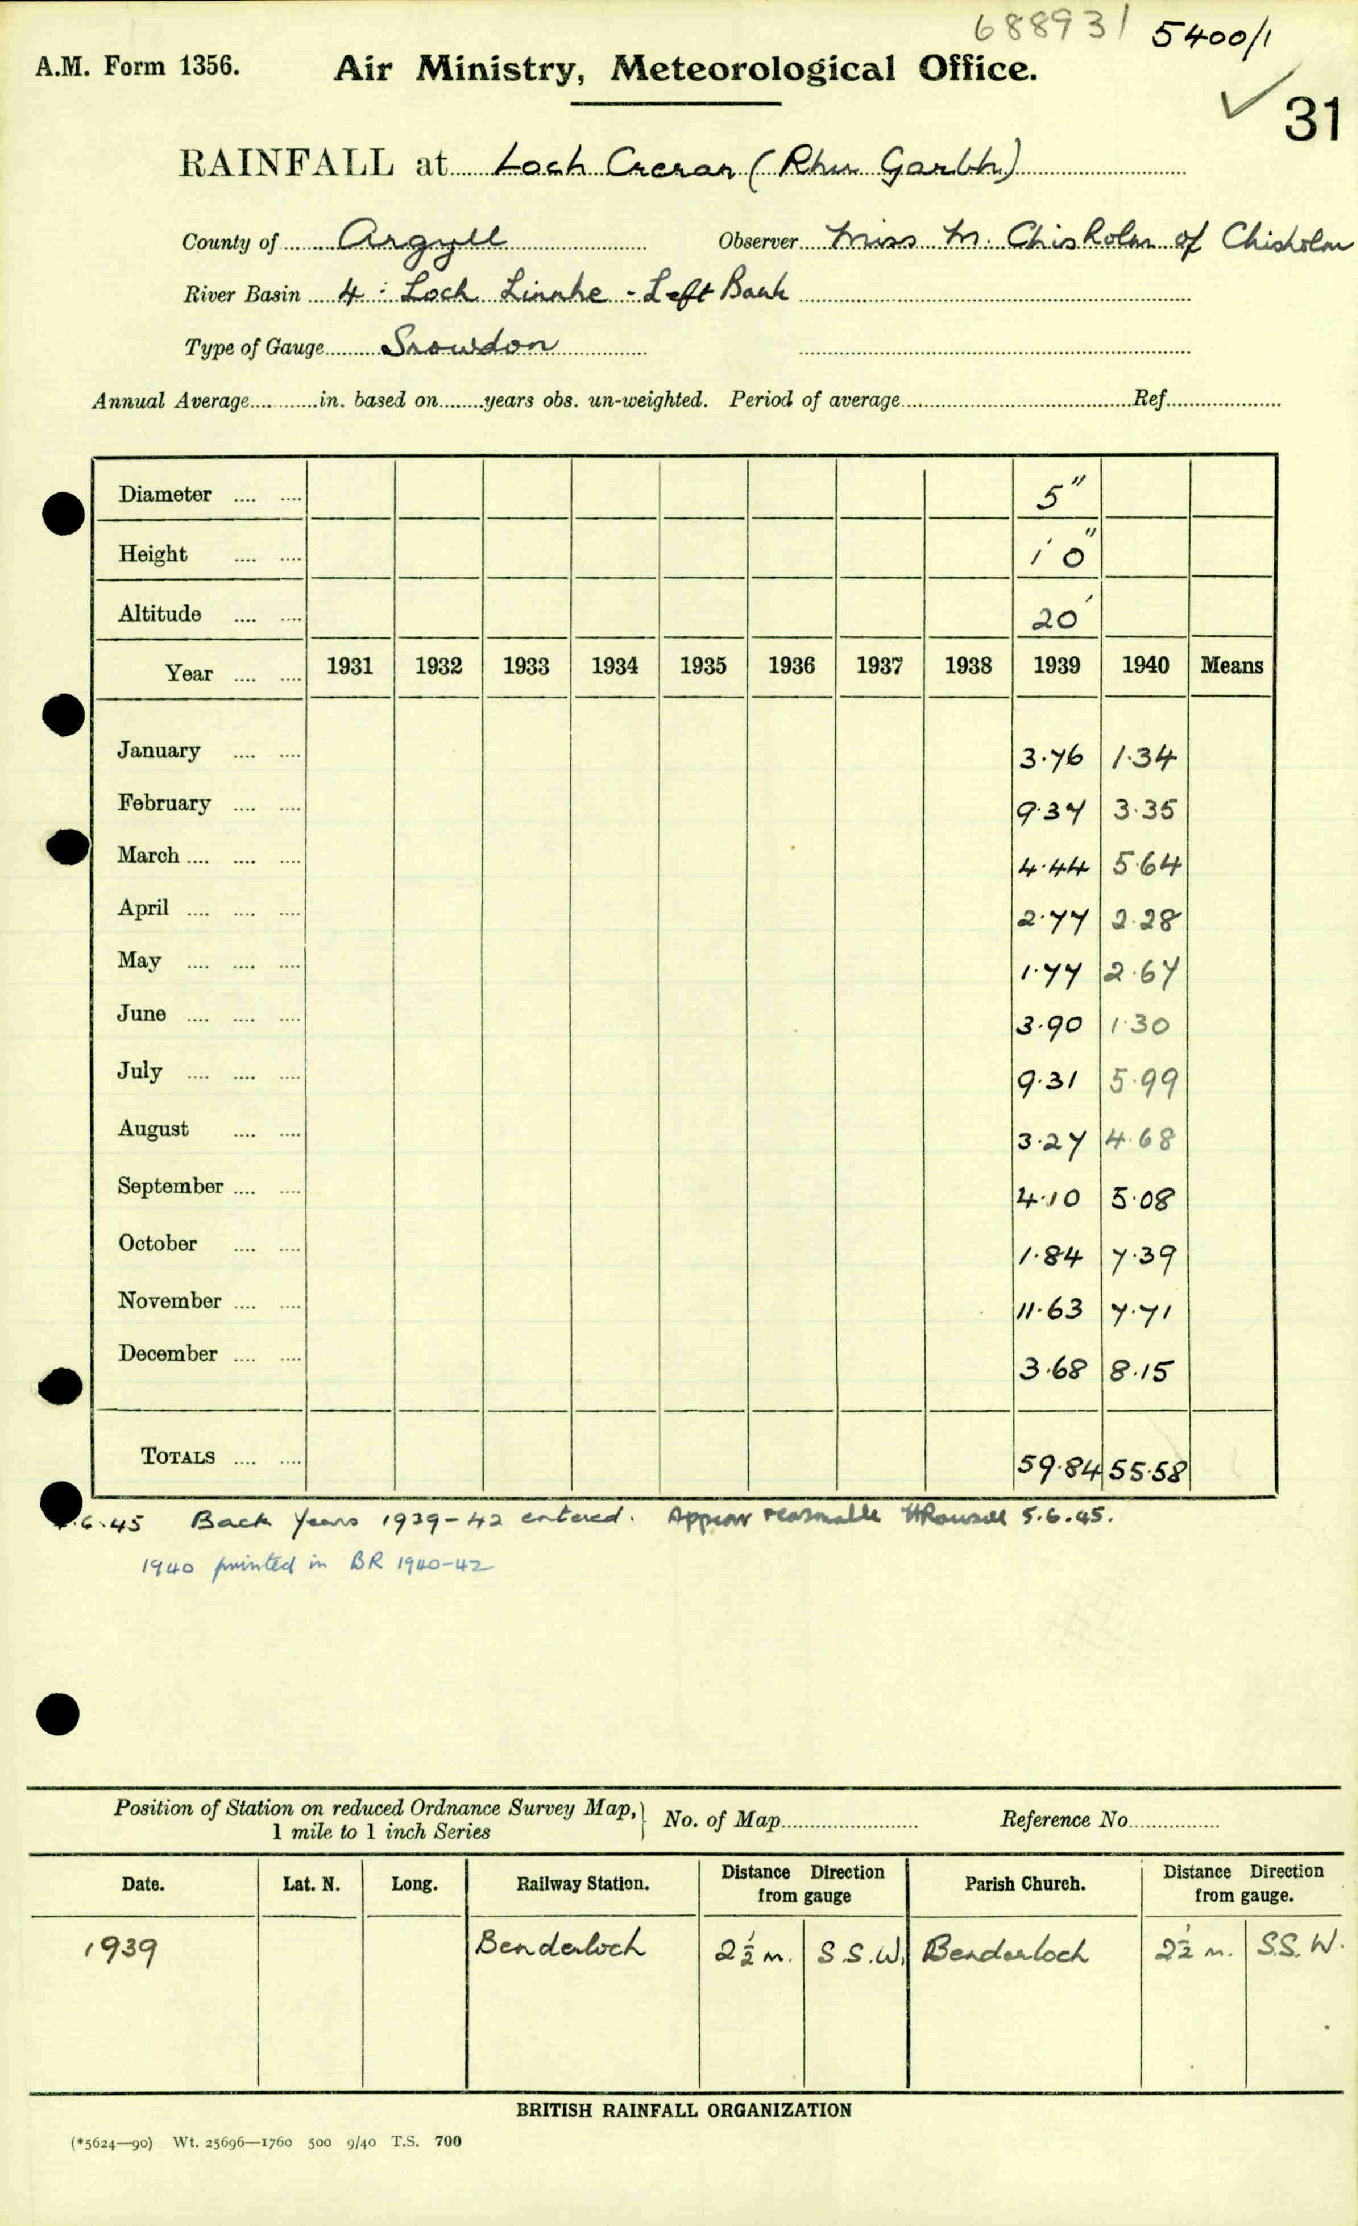 688931 5400/1
A.M. Form 1356. Air Ministry, Meteorological Office.
✓ 31
RAINFALL at Loch Creran (Rhu Garbh)
County of Argyll Observer Miss M. Chisholm of Chisholm
River Basin 4 : Loch Linnhe - Left Bank
Type of Gauge Snowdon
Annual Average in. based on years obs. un-weighted. Period of average Ref
Diameter .... .... 5"
Height .... .... 1' 0"
Altitude .... .... 20'
Year .... .... 1931 1932 1933 1934 1935 1936 1937 1938 1939 1940 Means
January .... .... 3.76 1.34
February .... .... 9.37 3.35
March .... .... .... 4.44 5.64
April .... .... .... 2.77 2.28
May .... .... .... 1.77 2.67
June .... .... .... 3.90 1.30
July .... .... .... 9.31 5.99
August .... .... 3.27 4.68
September .... .... 4.10 5.08
October .... .... 1.84 7.39
November .... .... 11.63 7.71
December .... .... 3.68 8.15
TOTALS .... .... 59.84 55.58
.6.45 Back years 1939-42 entered. Appear reasonable 5.6.45.
1940 printed in BR 1940-42
Position of Station on reduced Ordnance Survey Map, 1 mile to 1 inch Series No. of Map Reference No
Date. Lat. N. Long. Railway Station. Distance Direction from gauge Parish Church. Distance Direction from gauge.
1939 Benderloch 2½ m. S.S.W. Benderloch 2½ m. S.S.W.
BRITISH RAINFALL ORGANIZATION
(*5624—90) Wt. 25696—1760 500 9/40 T.S. 700